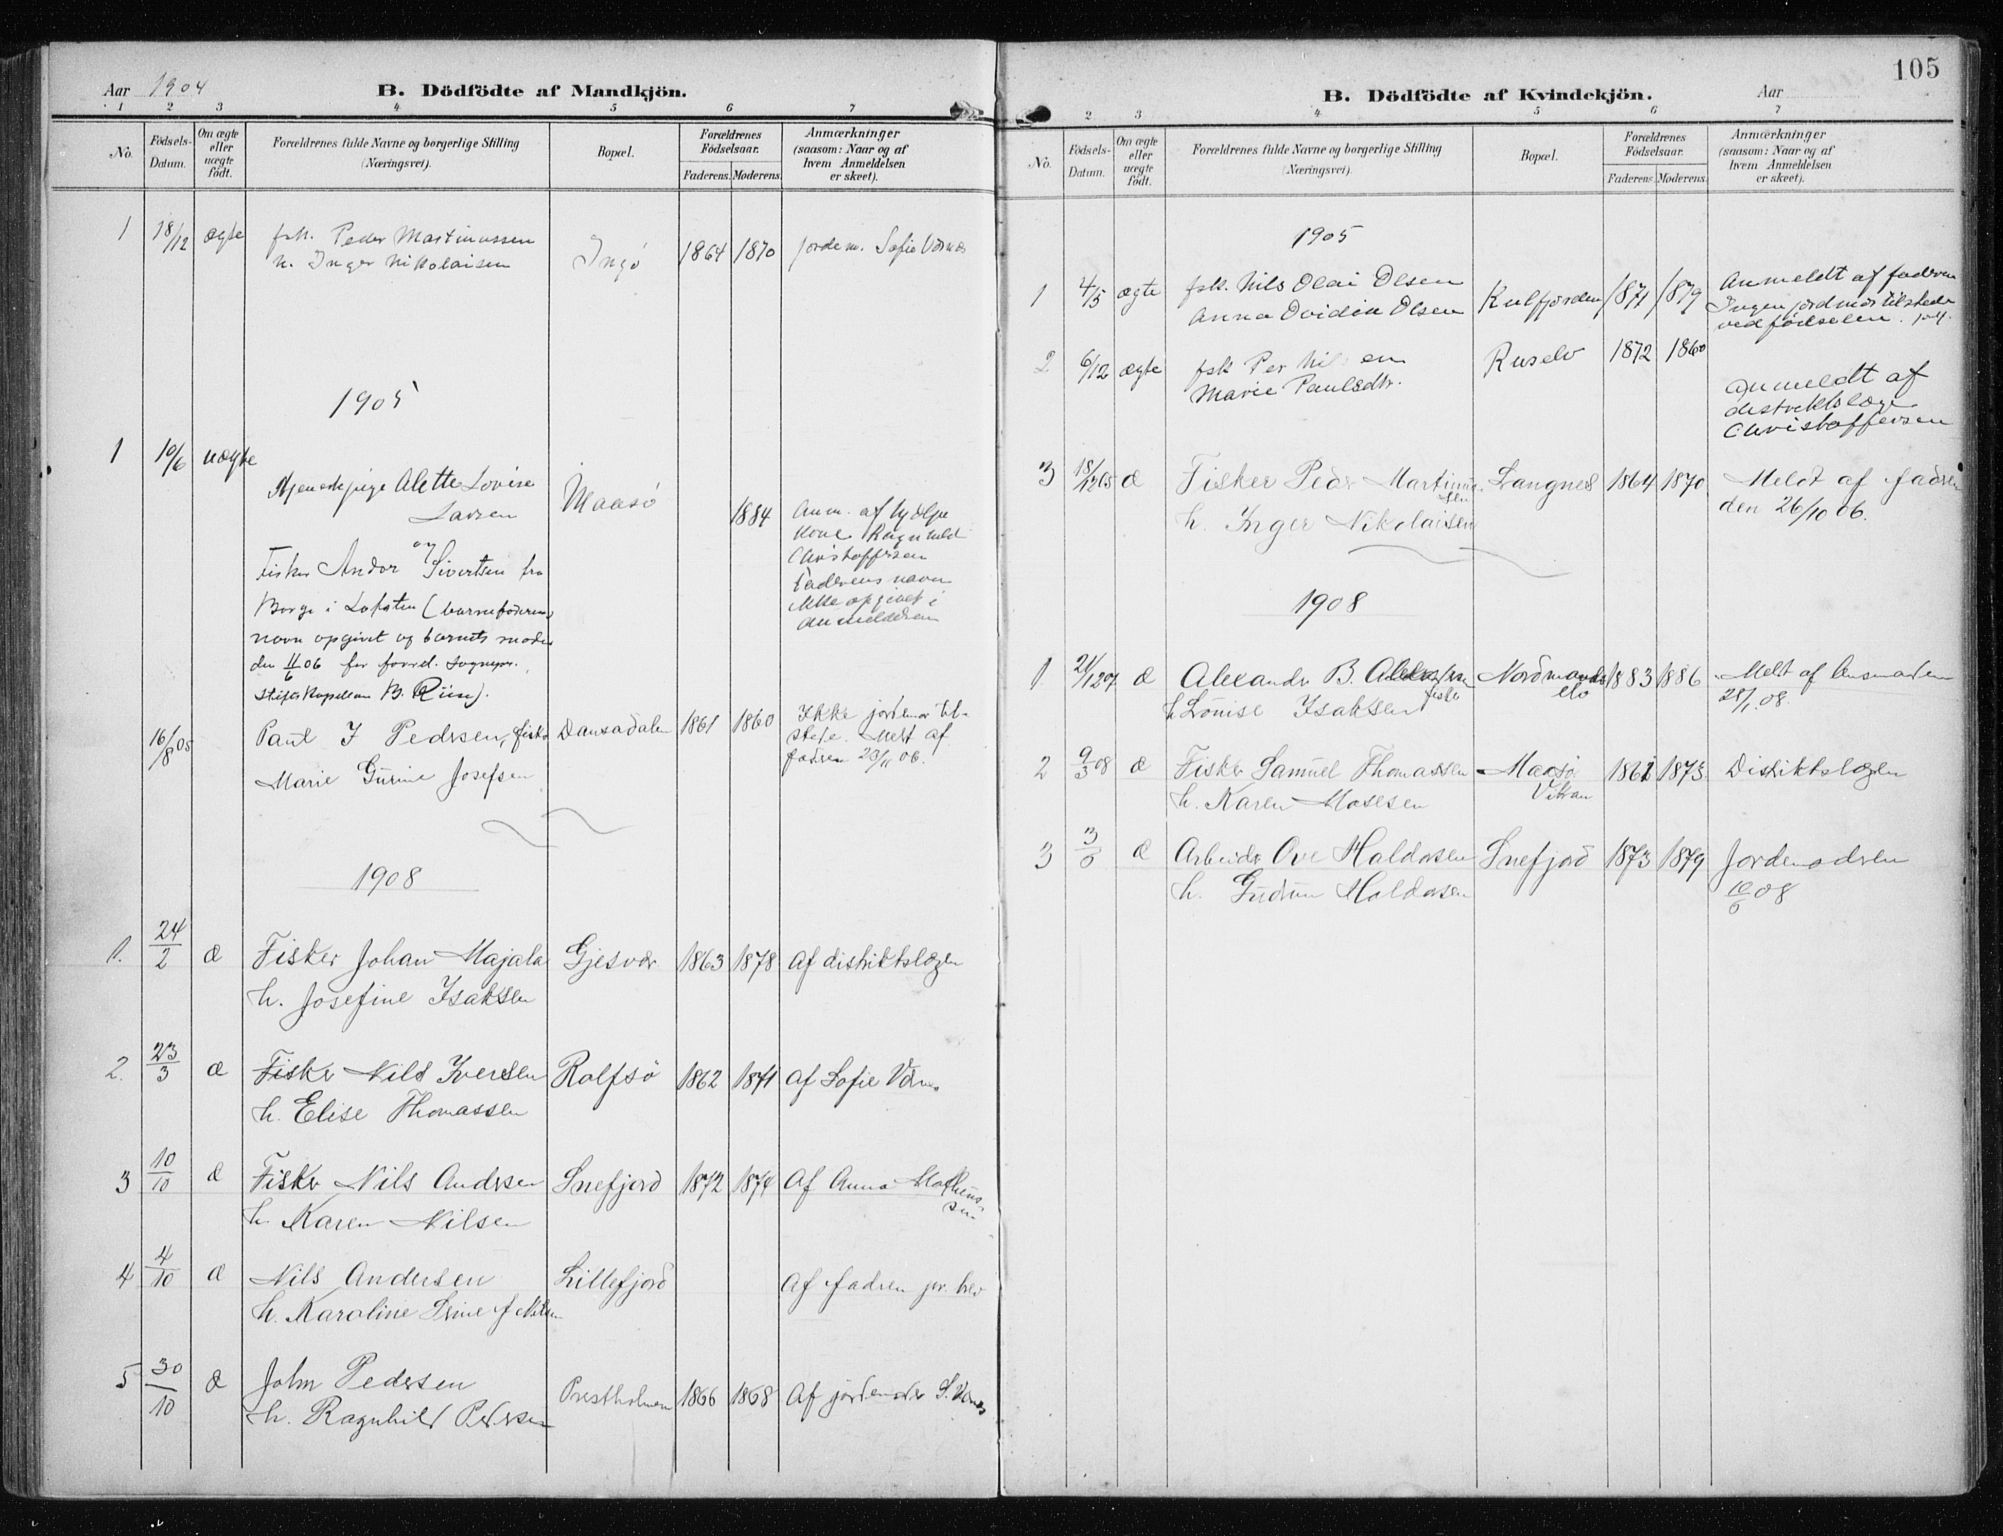 Aar 1904
B. Dödfödte af Mandkjön.
1 2 3 4 5 6 7
No.
Födsels-Datum.
Om ægte eller uægte födt.
Forældrenes fulde Navne og borgerlige Stilling (Næringsvei).
Bopæl.
Forældrenes Födselsaar.
Faderens. Moderens.
Anmærkninger (saasom: Naar og af hvem Anmeldelsen er skeet).
1 18/12 ægte fsk. Peder Martinussen Ingö 1864 1870 jordem. Sofie Værnes
h. Inger Nikolaisen
1905
1 10/6 uægte Pigeu Alette Lovise Maasö 1884 Anm. af hjælpe
Larsen
kone Ragnhild
og
Christoffersen
Fisker Andor Sivertsen fra
Faderens navn
Borge i Lofoten (barnefaderens
ikke opgivet i
navn opgivet og barnets moder
anmeldelsen
den 11/6 06 for forrd. sognepr.
Stiftskapellan B. Riise).
16/8 05 Paul J Pedersen, fisker Dansadalen 1861 1860 Ikke jordemor til-
stede. Melt af
fadren 23/11 06.
Marie Gurine Josefsen
1908
1. 24/2 æ Fisker Johan Majala Gjesvær 1863 1878 Af distriktslægen
h. Josefine Isaksen
2. 23/3 æ Fisker Nils Iversen Rolfsö 1862 1871 Af Sofie Værnes
h. Elise Thomassen
3 10/10 æ Fisker Nils Andersen Snefjord 1872 1874 Af Anna Mathius-
sen
h. Karen Nilsen
4 4/10 æ Nils Andersen Lillefjord Af fadren pr. brev
h. Karoline Trine f Nilsen
5 30/10 æ John Pedersen Prestholmen 1866 1868 Af jordemoder S. Værnes
h. Ragnhild Pedersen
105
B. Dödfödte af Kvindekjön.
Aar
2 3 4 5 6 7
No.
Födsels-Datum.
Om ægte eller uægte födt.
Forældrenes fulde Navne og borgerlige Stilling (Næringsvei).
Bopæl.
Forældrenes Födselsaar.
Faderens. Moderens.
Anmærkninger (saasom: Naar og af hvem Anmeldelsen er skeet).
1905
1 4/5 ægte fsk. Nils Olai Olsen Kulfjorden 1871 1879 Anmeldt af faderen
Anna Ovidia Olsen
Ingen jordmor tilstede
ved födselen.
2 6/12 ægte fsk Per Nilsen Ruselv 1872 1860
Marie Paulsdtr.
Anmeldt af
distriktslæge
Christoffersen
3 18/12 05 æ Fisker Peder Martinus- Langnes 1864 1870 Meldt af fadren
sen
den 26/10 06.
h. Inger Nikolaisen
1908
1 21/12 07 æ Alexander B. Aleksandersen Nordmands- 1883 1886 Melt af lensmanden
fisker
elv
28/1. 08.
h Louise Isaksen
2 9/3 08 æ Fisker Samuel Thomassen Maasö 1861 1873 Distriktslægen
h. Karen Mosesen
Vikran
3 3/6 æ Arbeider Ove Haldorsen Snefjord 1873 1879 Jordemodren
10/6 08
h. Gudrun Haldorsen